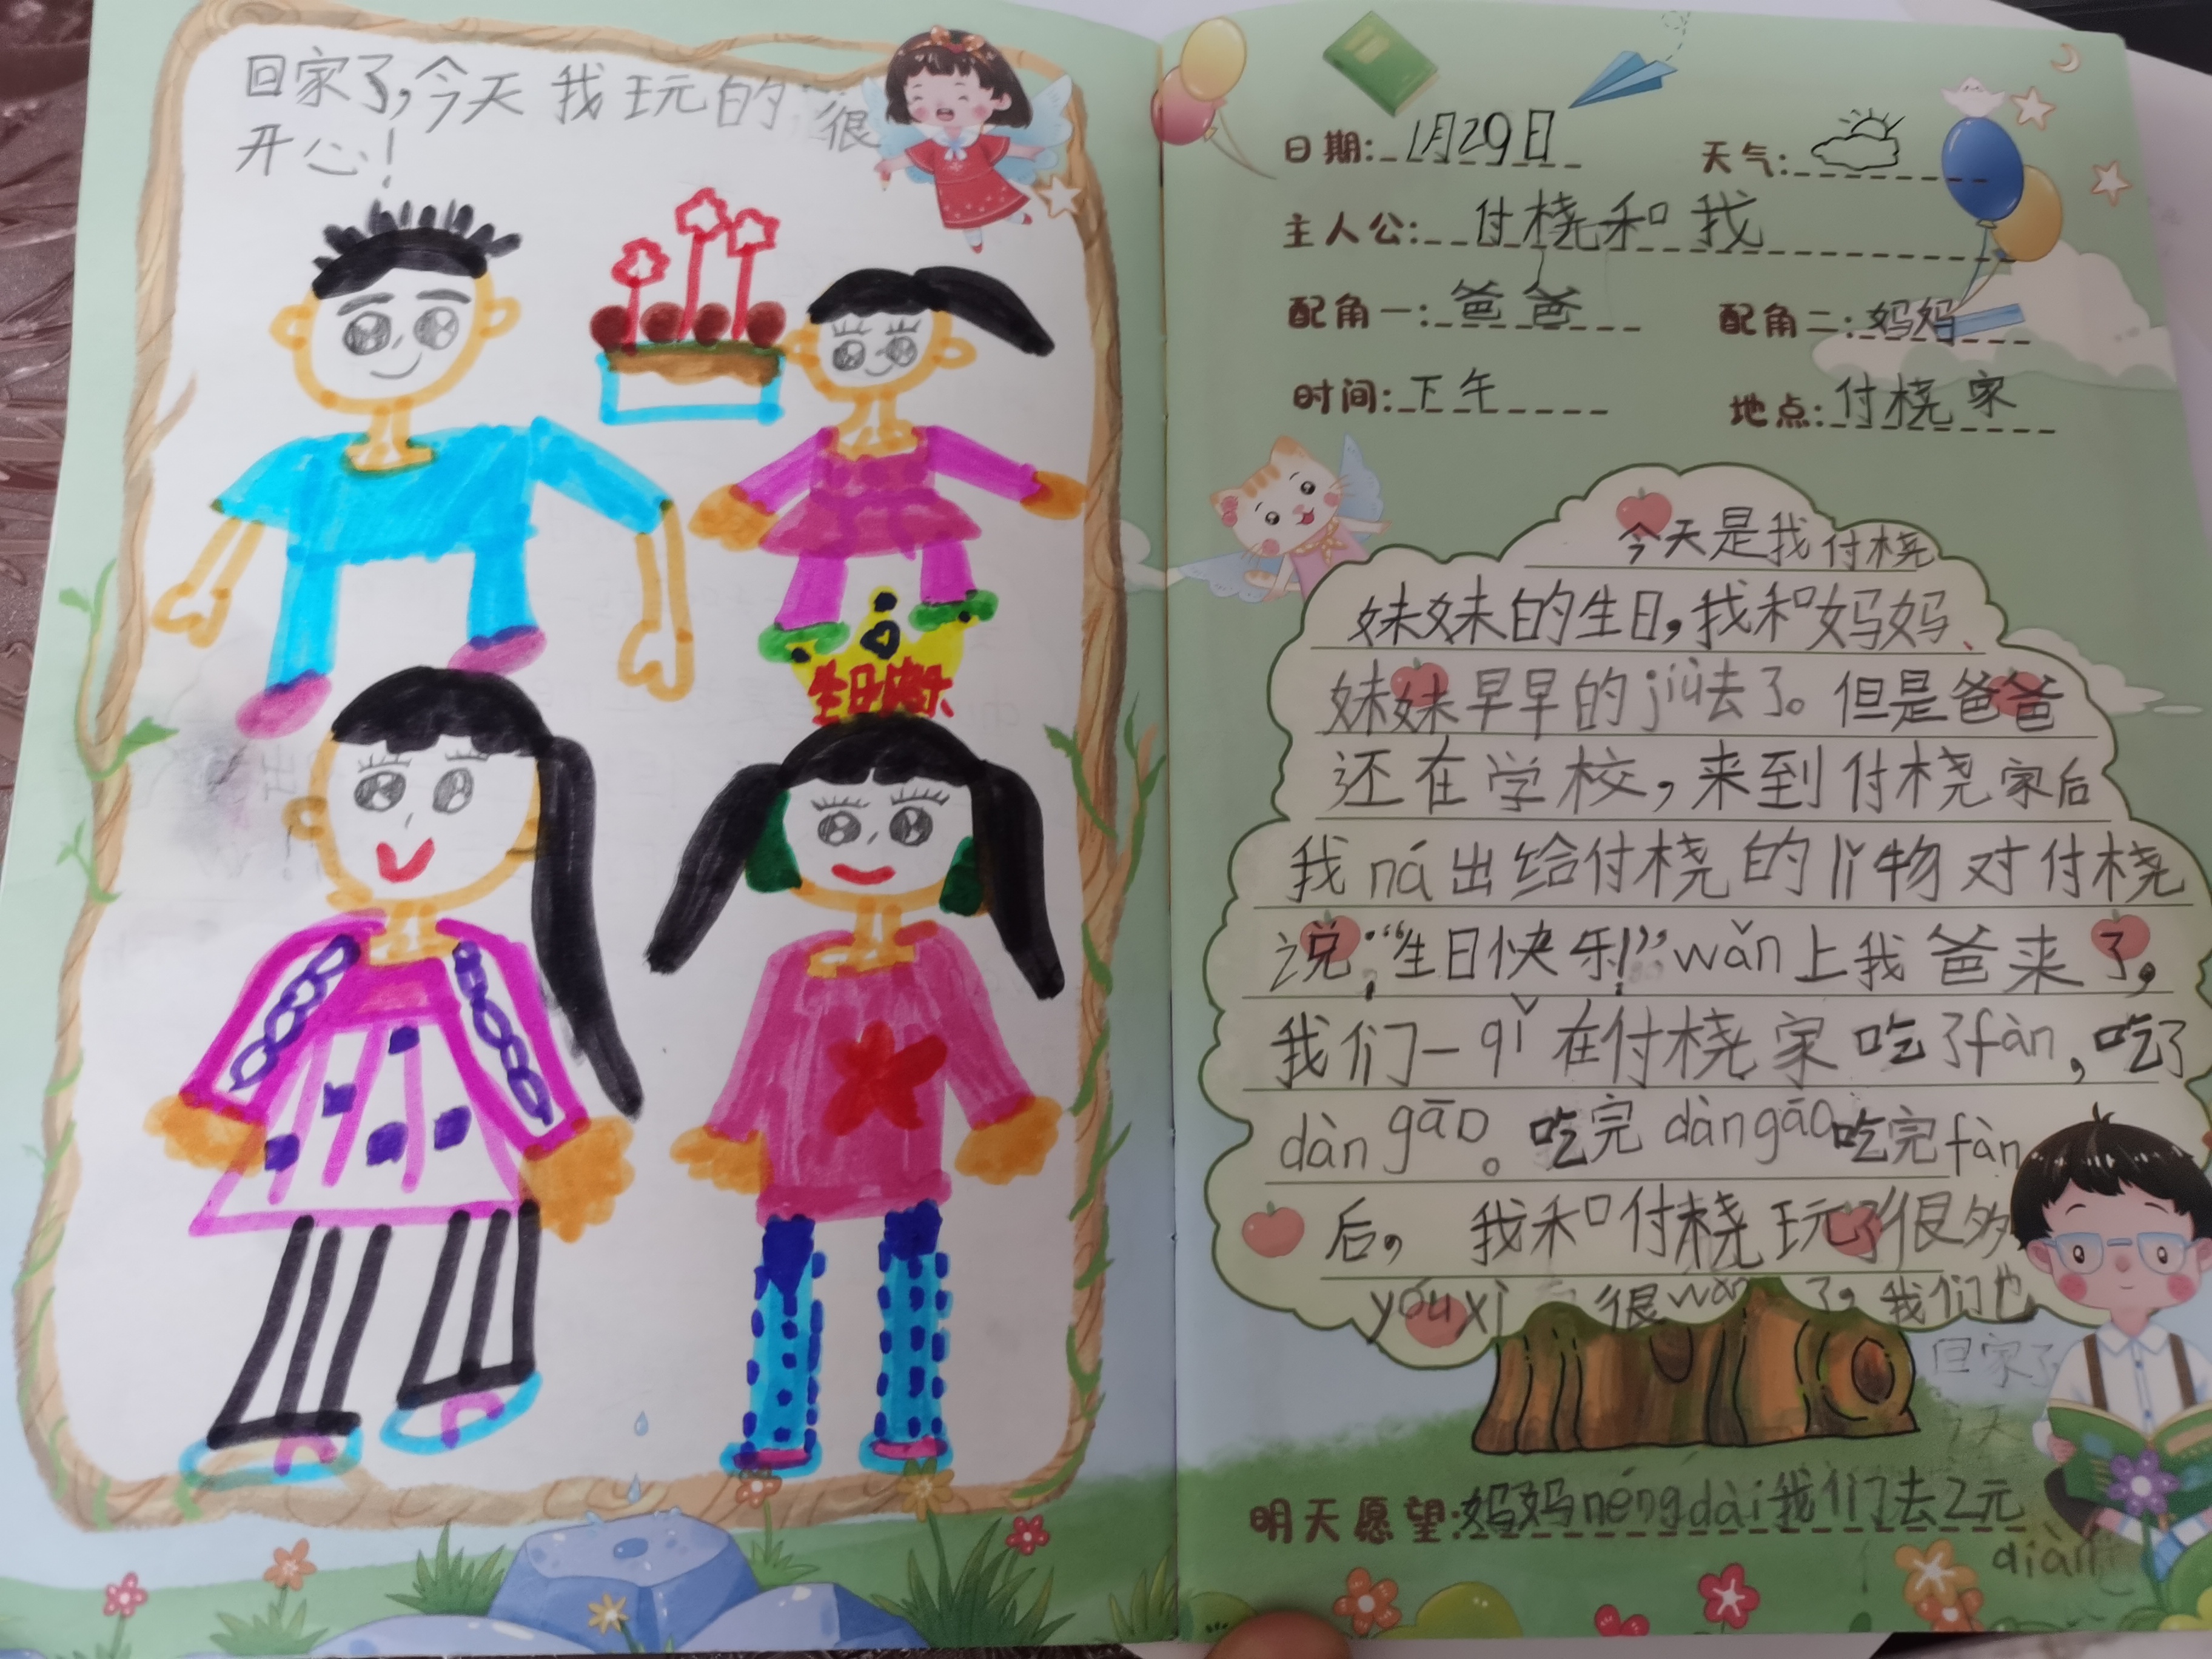 回家了,今天我玩的很
开心!
生日快乐
日期:1月29日 天气:
主人公:付桡和我
配角一:爸爸 配角二:妈妈
时间:下午 地点:付桡家
今天是我付桡
妹妹的生日,我和妈妈、
妹妹早早的jiù去了。但是爸爸
还在学校,来到付桡家后
我ná出给付桡的lǐ物对付桡
说:“生日快乐!”wǎn上我爸来了,
我们一qǐ在付桡家吃了fàn,吃了
dàngāo。吃完dàngāo吃完fàn
后,我和付桡玩了很多
yóuxì 很wǎn了,我们也
回家了
今天
明天愿望:妈妈néngdài我们去2元
diàn